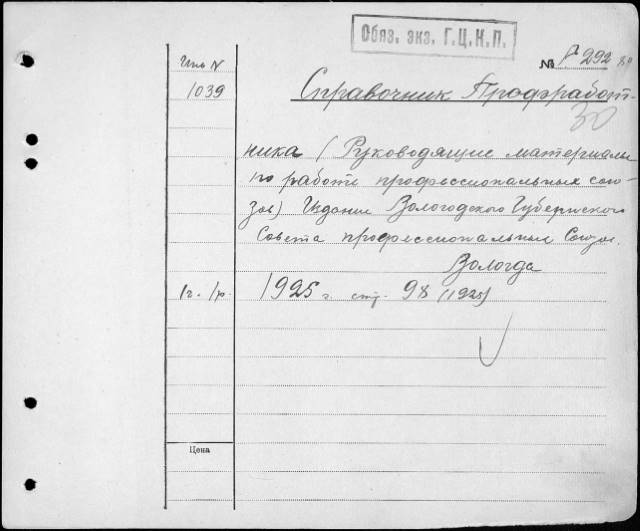 Обяз. экз. Г.Ц.К.П.
№ Р 292
Инв N
1039
Справочник Профработ-
30
ника (Руководящие материалы
по работе профессиональных сою-
зов) Издание Вологодского Губернского
Совета профессиональных Союзов.
Вологда
1925 г. стр. 98 (1925)
Цена